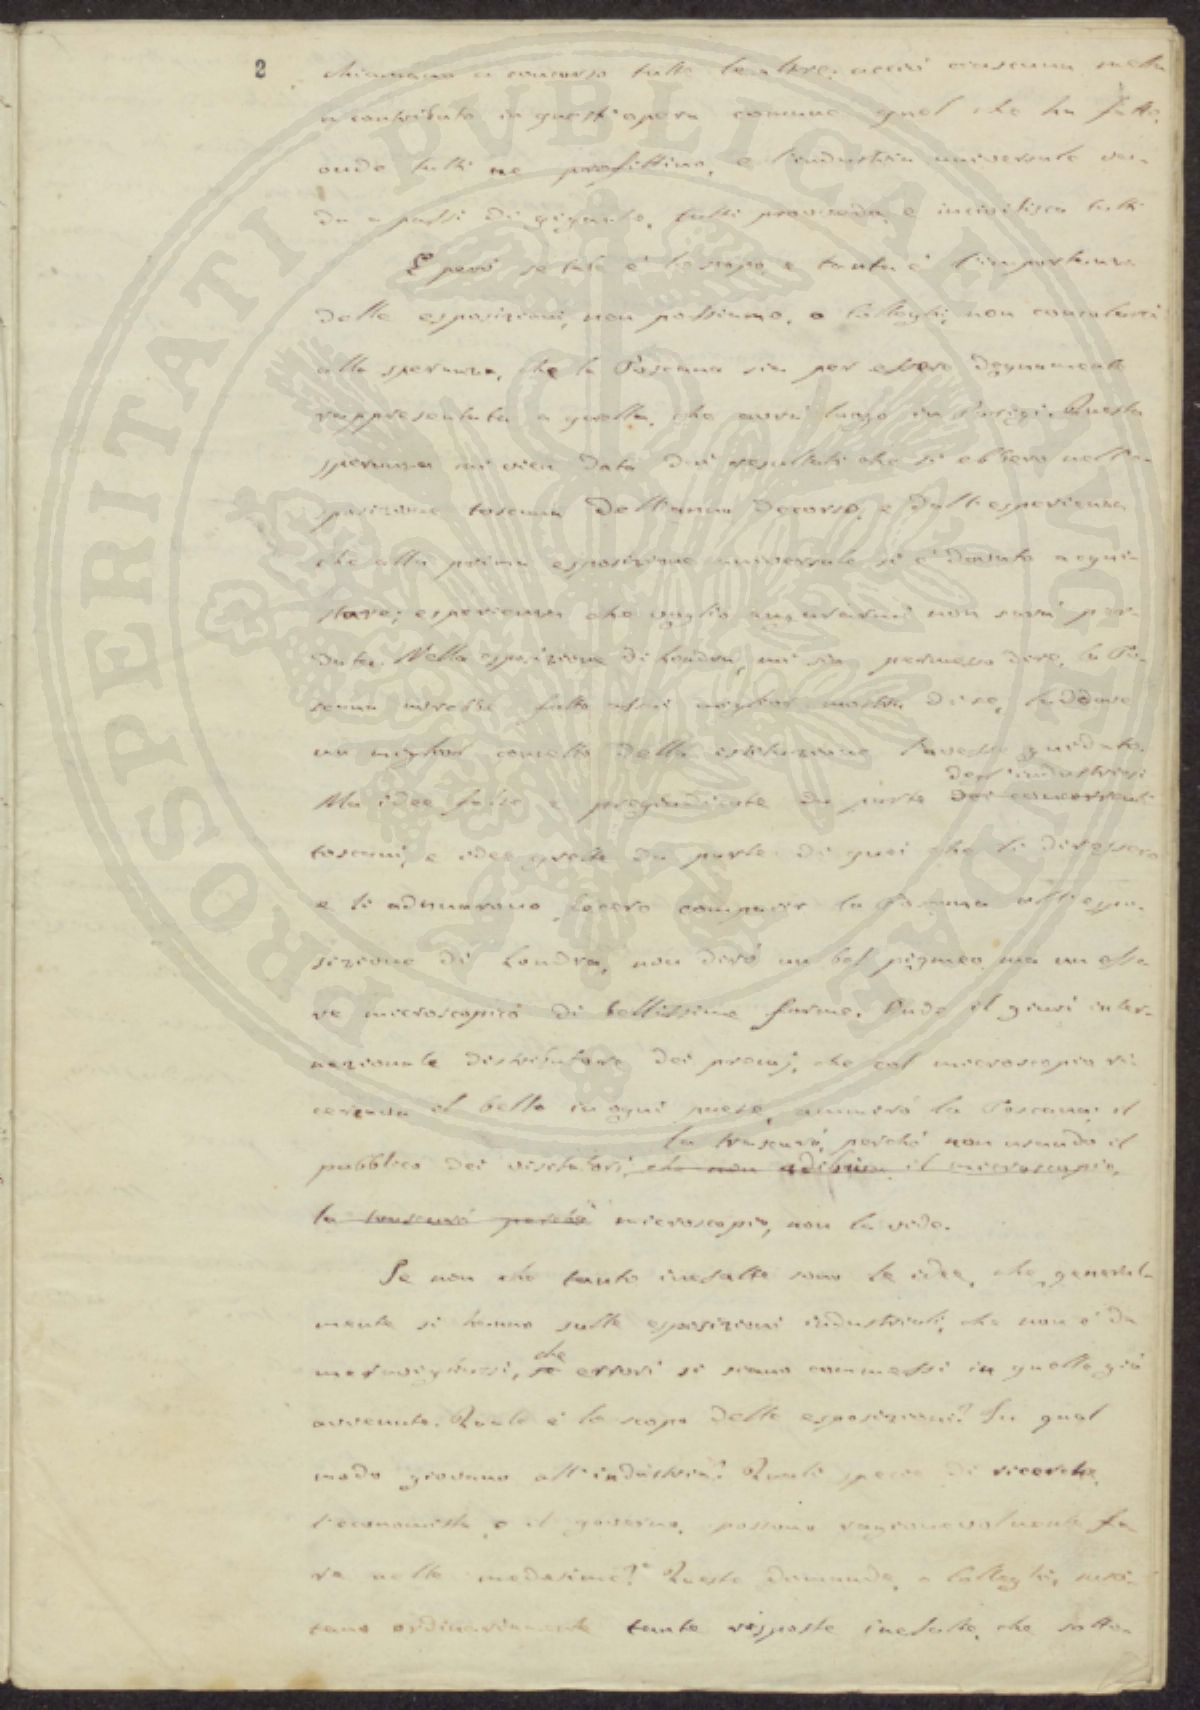 2
chiamano a concorso tutte le altre; acciò ciascuna metta
a contributo in quest'opera comune quel che ha fatto,
onde tutti ne profittino, e l'industria universale va-
da a passi di gigante, tutti provveda, e incivilisca tutti
E però se tale è lo scopo, e tanta è l'importanza
delle esposizioni, non possiamo, o Colleghi, non
alla speranza, che la Toscana sia per essere degnamente
rappresentata a quella, che avrà luogo in Parigi. Questa
speranza mi vien data dai resultati che si ebbero nell'e-
sposizione toscana dell'anno decorso, e dall'esperienza
che alla prima esposizione universale si è dovuto acqui-
stare; esperienza che voglio augurarmi non sarà per-
duta. Nella esposizione di Londra, mi sia permesso dire, la To-
scana avrebbe fatto assai miglior mostra di se, laddove
un miglior concetto della istituzione l'avesse guidata.
degl'industriosi
Ma idee false e pregiudicate da parte dei concorrenti
toscani, e idee grette da parte di quei che li diressero
e li adunarono, fecero comparir la Toscana all'espo-
sizione di Londra, non dirò un bel pigmeo, ma un esse-
re microscopico di bellissime forme. Onde il giurì inter-
nazionale distributore dei premj, che col microscopio ri-
cercava il bello in ogni paese, ammirò la Toscana; il
la trascurò, perché non usando il
pubblico dei visitatori, che non adibiva il microscopio,
la trascurò perché microscopio, non la vide.
Se non che tanto inesatte sono le idee, che general-
mente si hanno sulle esposizioni industriali, che non è da
che
maravigliarsi, se errori si siano commessi in quelle già
avvenute. Quale è lo scopo delle esposizioni? In qual
modo giovano all'industria? Quali specie di ricerche,
l'economista, o il governo, possono ragionevolmente fa-
re nelle medesime? Queste domande, o Colleghi, susci-
tano ordinariamente tante risposte inesatte, che sotto-
PROSPERITATI PVBLICAE AVGENDAE